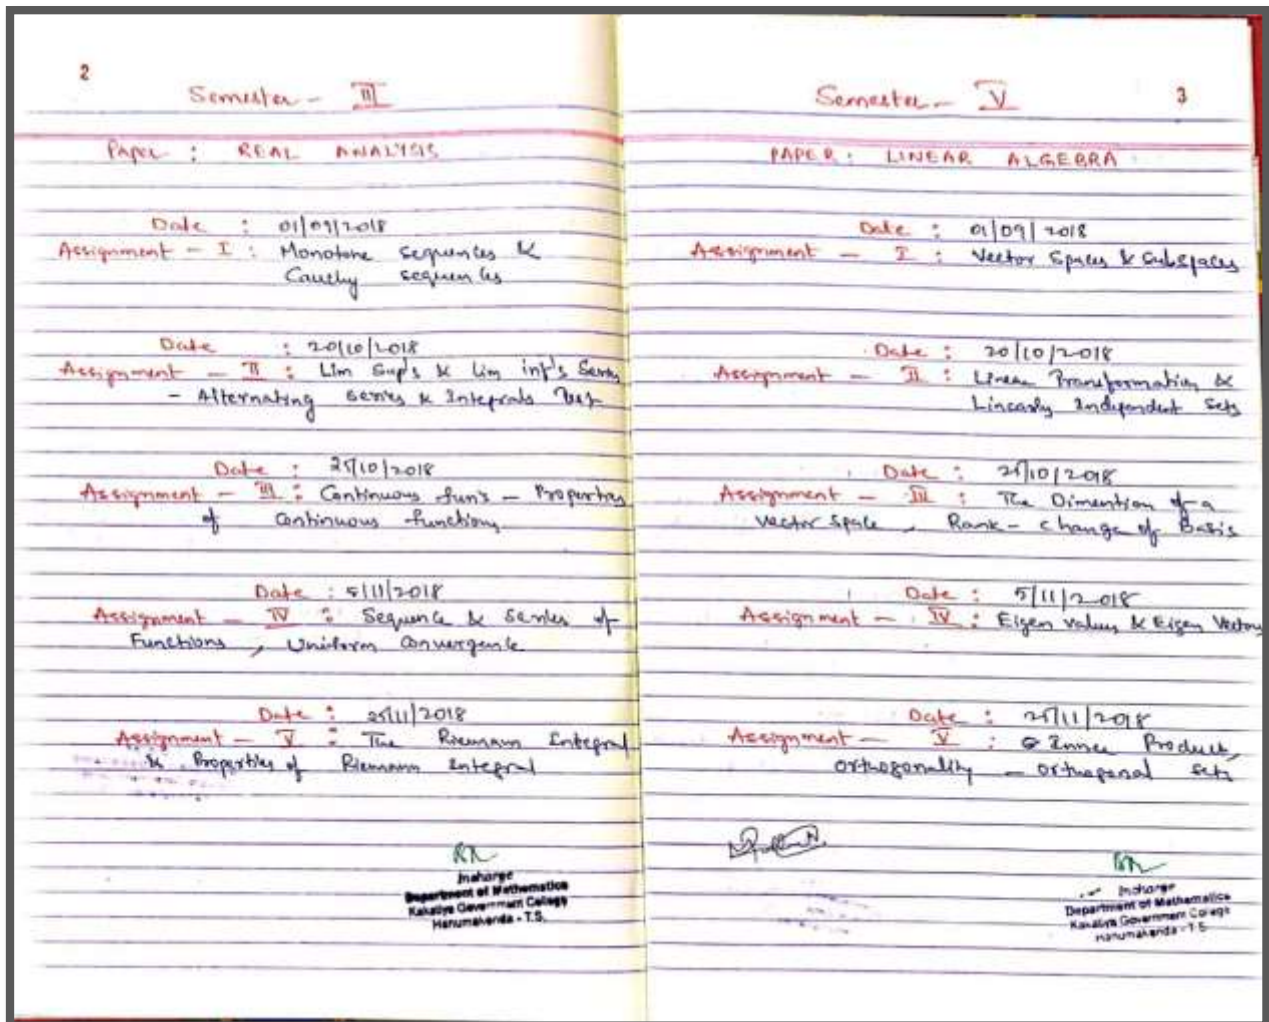 2
Semester - III
Paper : REAL ANALYSIS
Date : 01/09/2018
Assignment - I : Monotone sequences &
Cauchy sequences
Date : 20/10/2018
Assignment - II : Lim Sup's & Lim inf's Series
- Alternating series & Integrals Test
Date : 25/10/2018
Assignment - III : Continuous fun's - Properties
of Continuous functions
Date : 5/11/2018
Assignment - IV : Sequence & Series of
Functions, Uniform Convergence
Date : 25/11/2018
Assignment - V : The Riemann Integral
& Properties of Riemann Integral
Incharge
Department of Mathematics
Kakatiya Government College
Hanumakonda - T.S.
Semester - V
3
PAPER : LINEAR ALGEBRA
Date : 01/09/2018
Assignment - I : Vector Spaces & Subspaces
Date : 20/10/2018
Assignment - II : Linear Transformation &
Linearly Independent Sets
Date : 25/10/2018
Assignment - III : The Dimention of a
Vector Space, Rank - change of Basis
Date : 5/11/2018
Assignment - IV : Eigen values & Eigen Vectors
Date : 25/11/2018
Assignment - V : Inner Product,
Orthogonality - orthogonal sets
Incharge
Department of Mathematics
Kakatiya Government College
Hanumakonda - T.S.